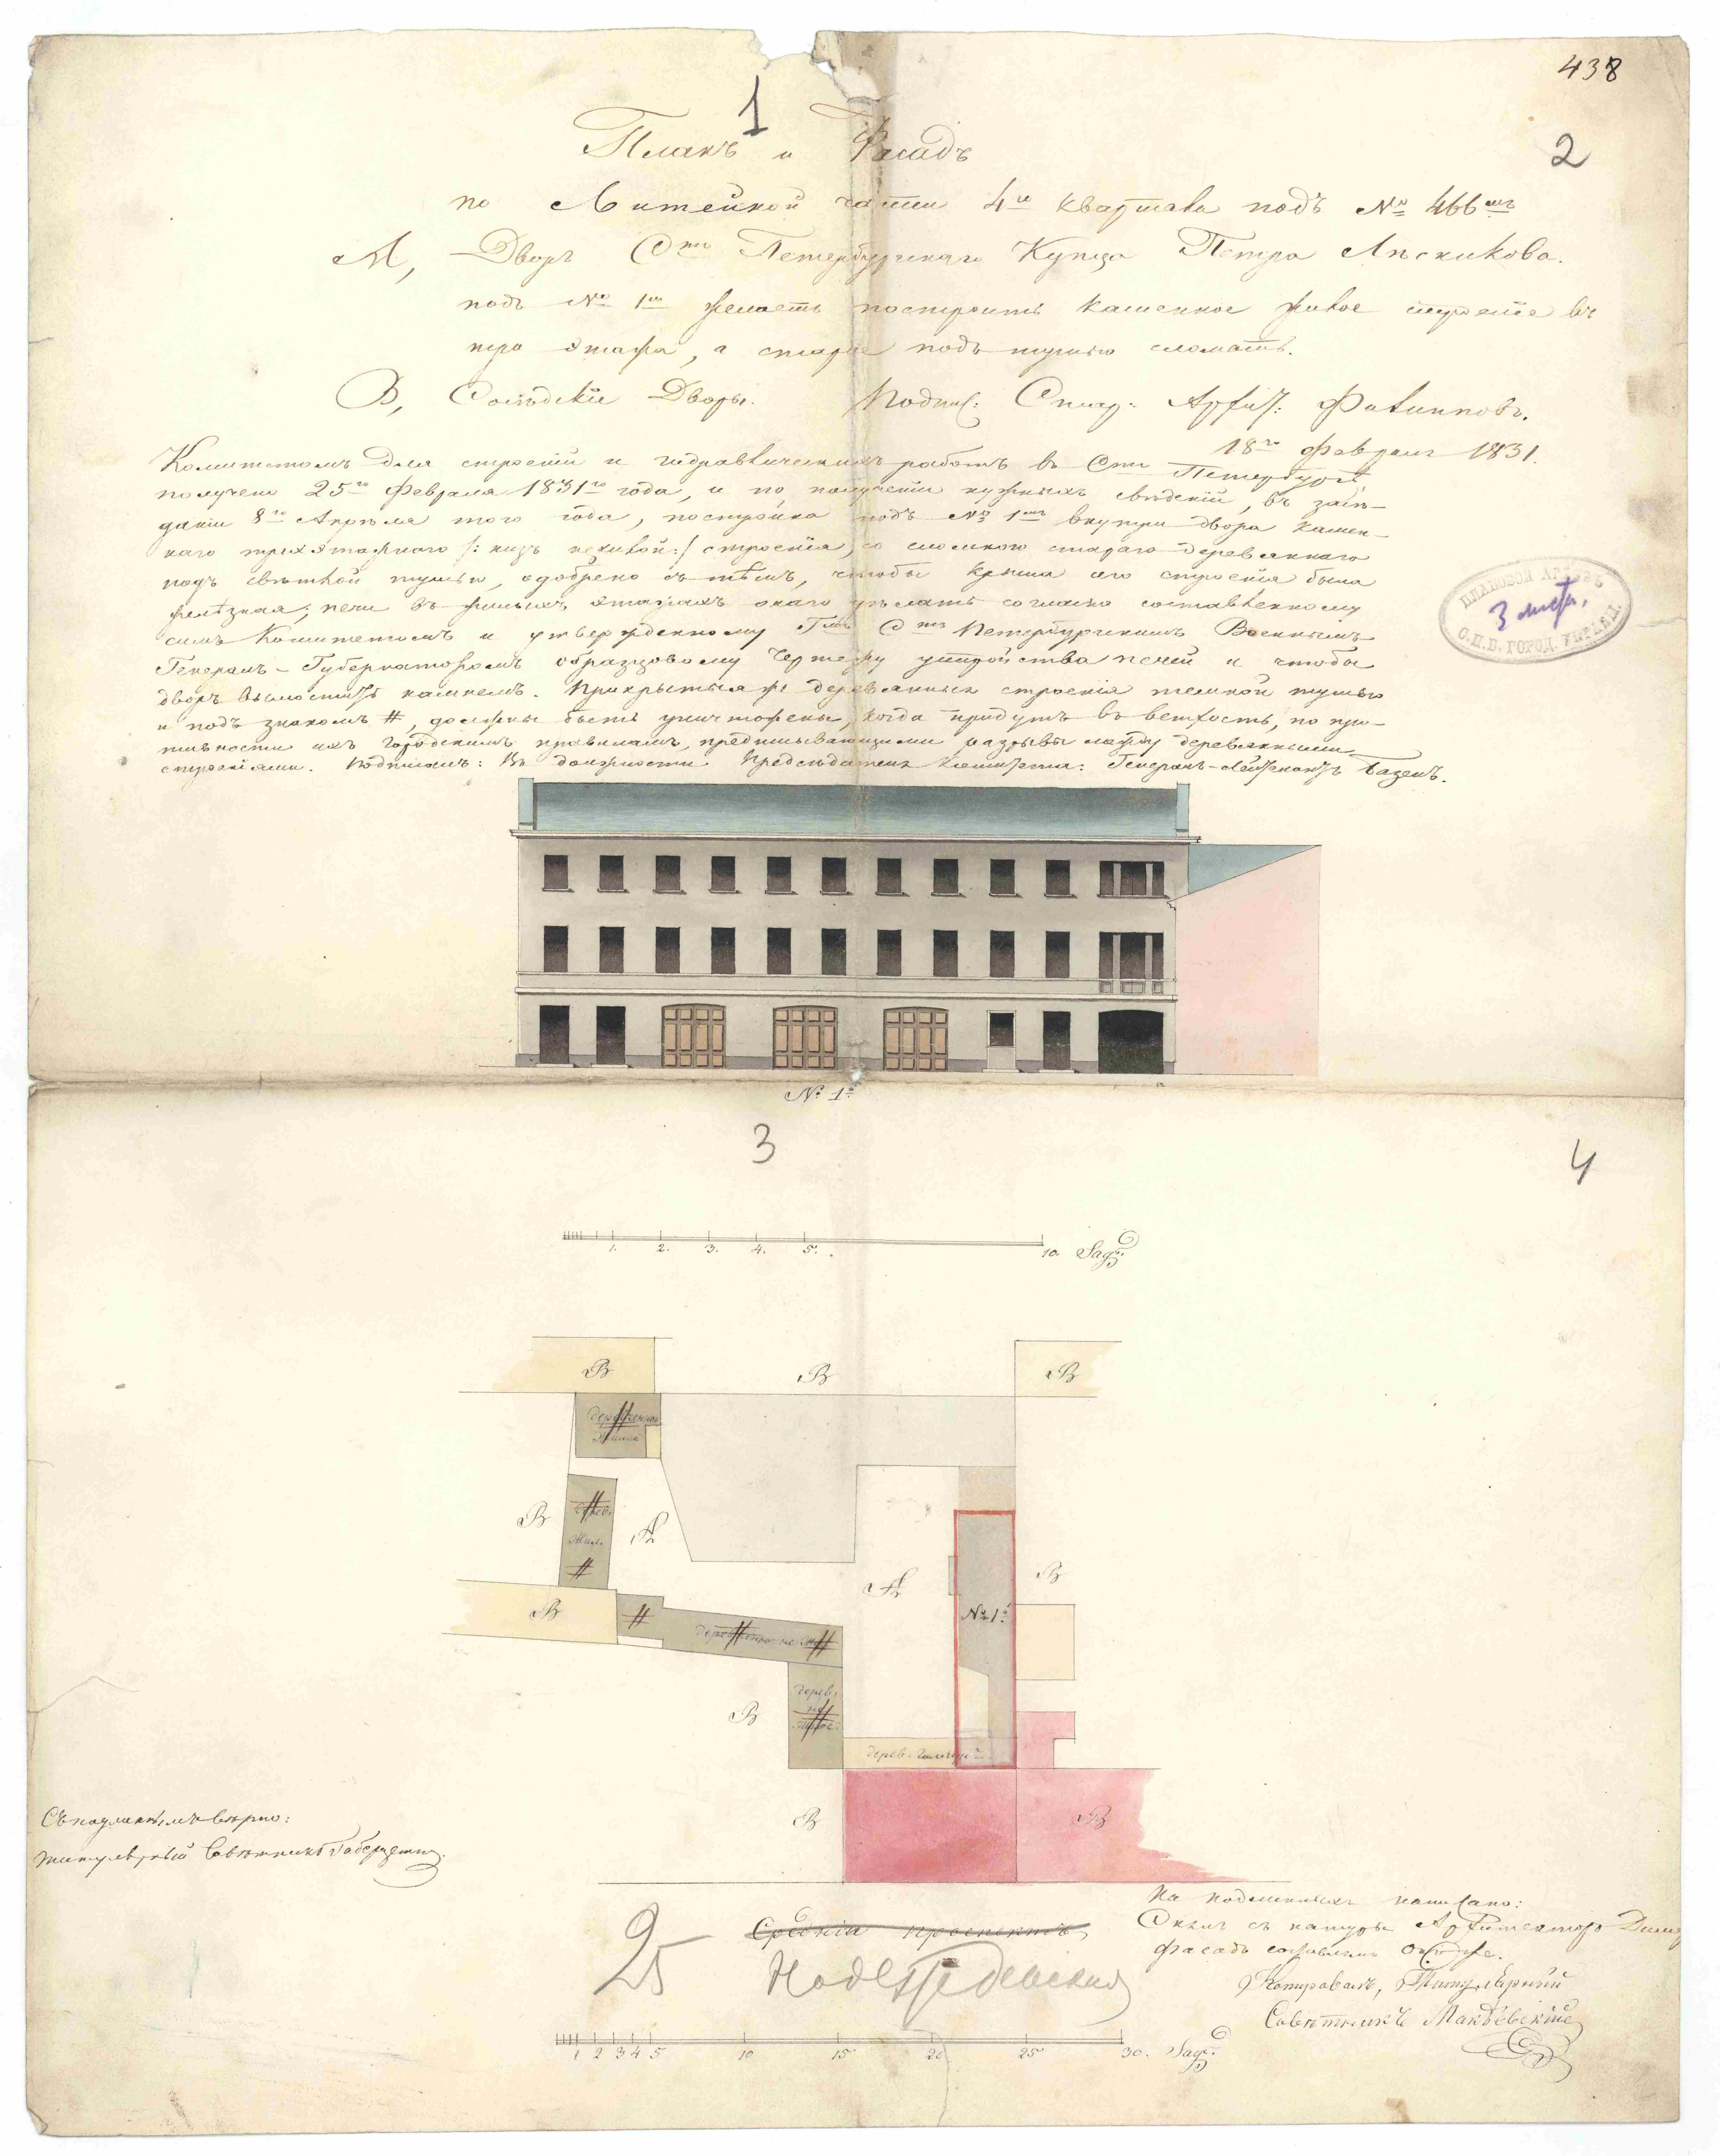 438
1
2
Планъ и Фасадъ
по Литейной части 4го квартала подъ № 466мъ
А, Дворъ Сктъ Петербургскаго Купца Петра
подъ № 1мъ желаетъ построить каменное жилое строеніе въ
три этажа, а старое подъ тушью сломать.
В, Сосѣдскіе Дворы. Подпис:
18го Февраля 1831.
Комитетомъ для строеній и гидравлическихъ работъ въ Сктъ Петербургѣ,
получено 25го Февраля 1831го года, и по полученіи нужныхъ свѣдѣній, въ засѣ-
даніи 8го Апрѣля того года, постройка подъ № 1мъ внутри двора камен-
наго трехэтажнаго /: низъ нежилой :/ строенія, со сломкою стараго деревяннаго
подъ свѣтлой тушью, одобрено съ тѣмъ, чтобы крыша его строенія была
желѣзная; печи въ жилыхъ этажахъ онаго сдѣлать согласно составленному
симъ Комитетомъ и утвержденному Гмъ Сктъ Петербургскимъ Военнымъ
Генералъ-Губернаторомъ образцовому чертежу устройства печей и чтобы
дворъ вымостить камнемъ. Прикрытыя же деревянныя строенія темной тушью
и подъ знакомъ #, должны быть уничтожены, когда придутъ въ ветхость, по про-
тивности ихъ городскимъ правиламъ, предписывающими разрывы между деревянными
строеніями. Подписалъ: Въ должности Предсѣдателя Комитета: Генералъ-Лейтенантъ Базенъ.
ПЛАНОВОЙ АРХИВЪ
3 листа,
С.П.Б. ГОРОД. УПРАВЫ.
№ 1й
3
4
1. 2. 3. 4. 5. 10. Саж:
В В В
#
В # А
#
А В
№ 1й
В #
# #
В дерев:
#
дерев:
В В
Съ подлиннымъ вѣрно:
Титулярный Совѣтникъ
На подлинныхъ написано:
Снялъ съ натуры Архитекторъ
фасадъ составлялъ
Копировалъ, Титулярный
Совѣтникъ
25
Средній проспектъ
Надеждинская
1 2 3 4 5 10 15 20 25 30. Саж: